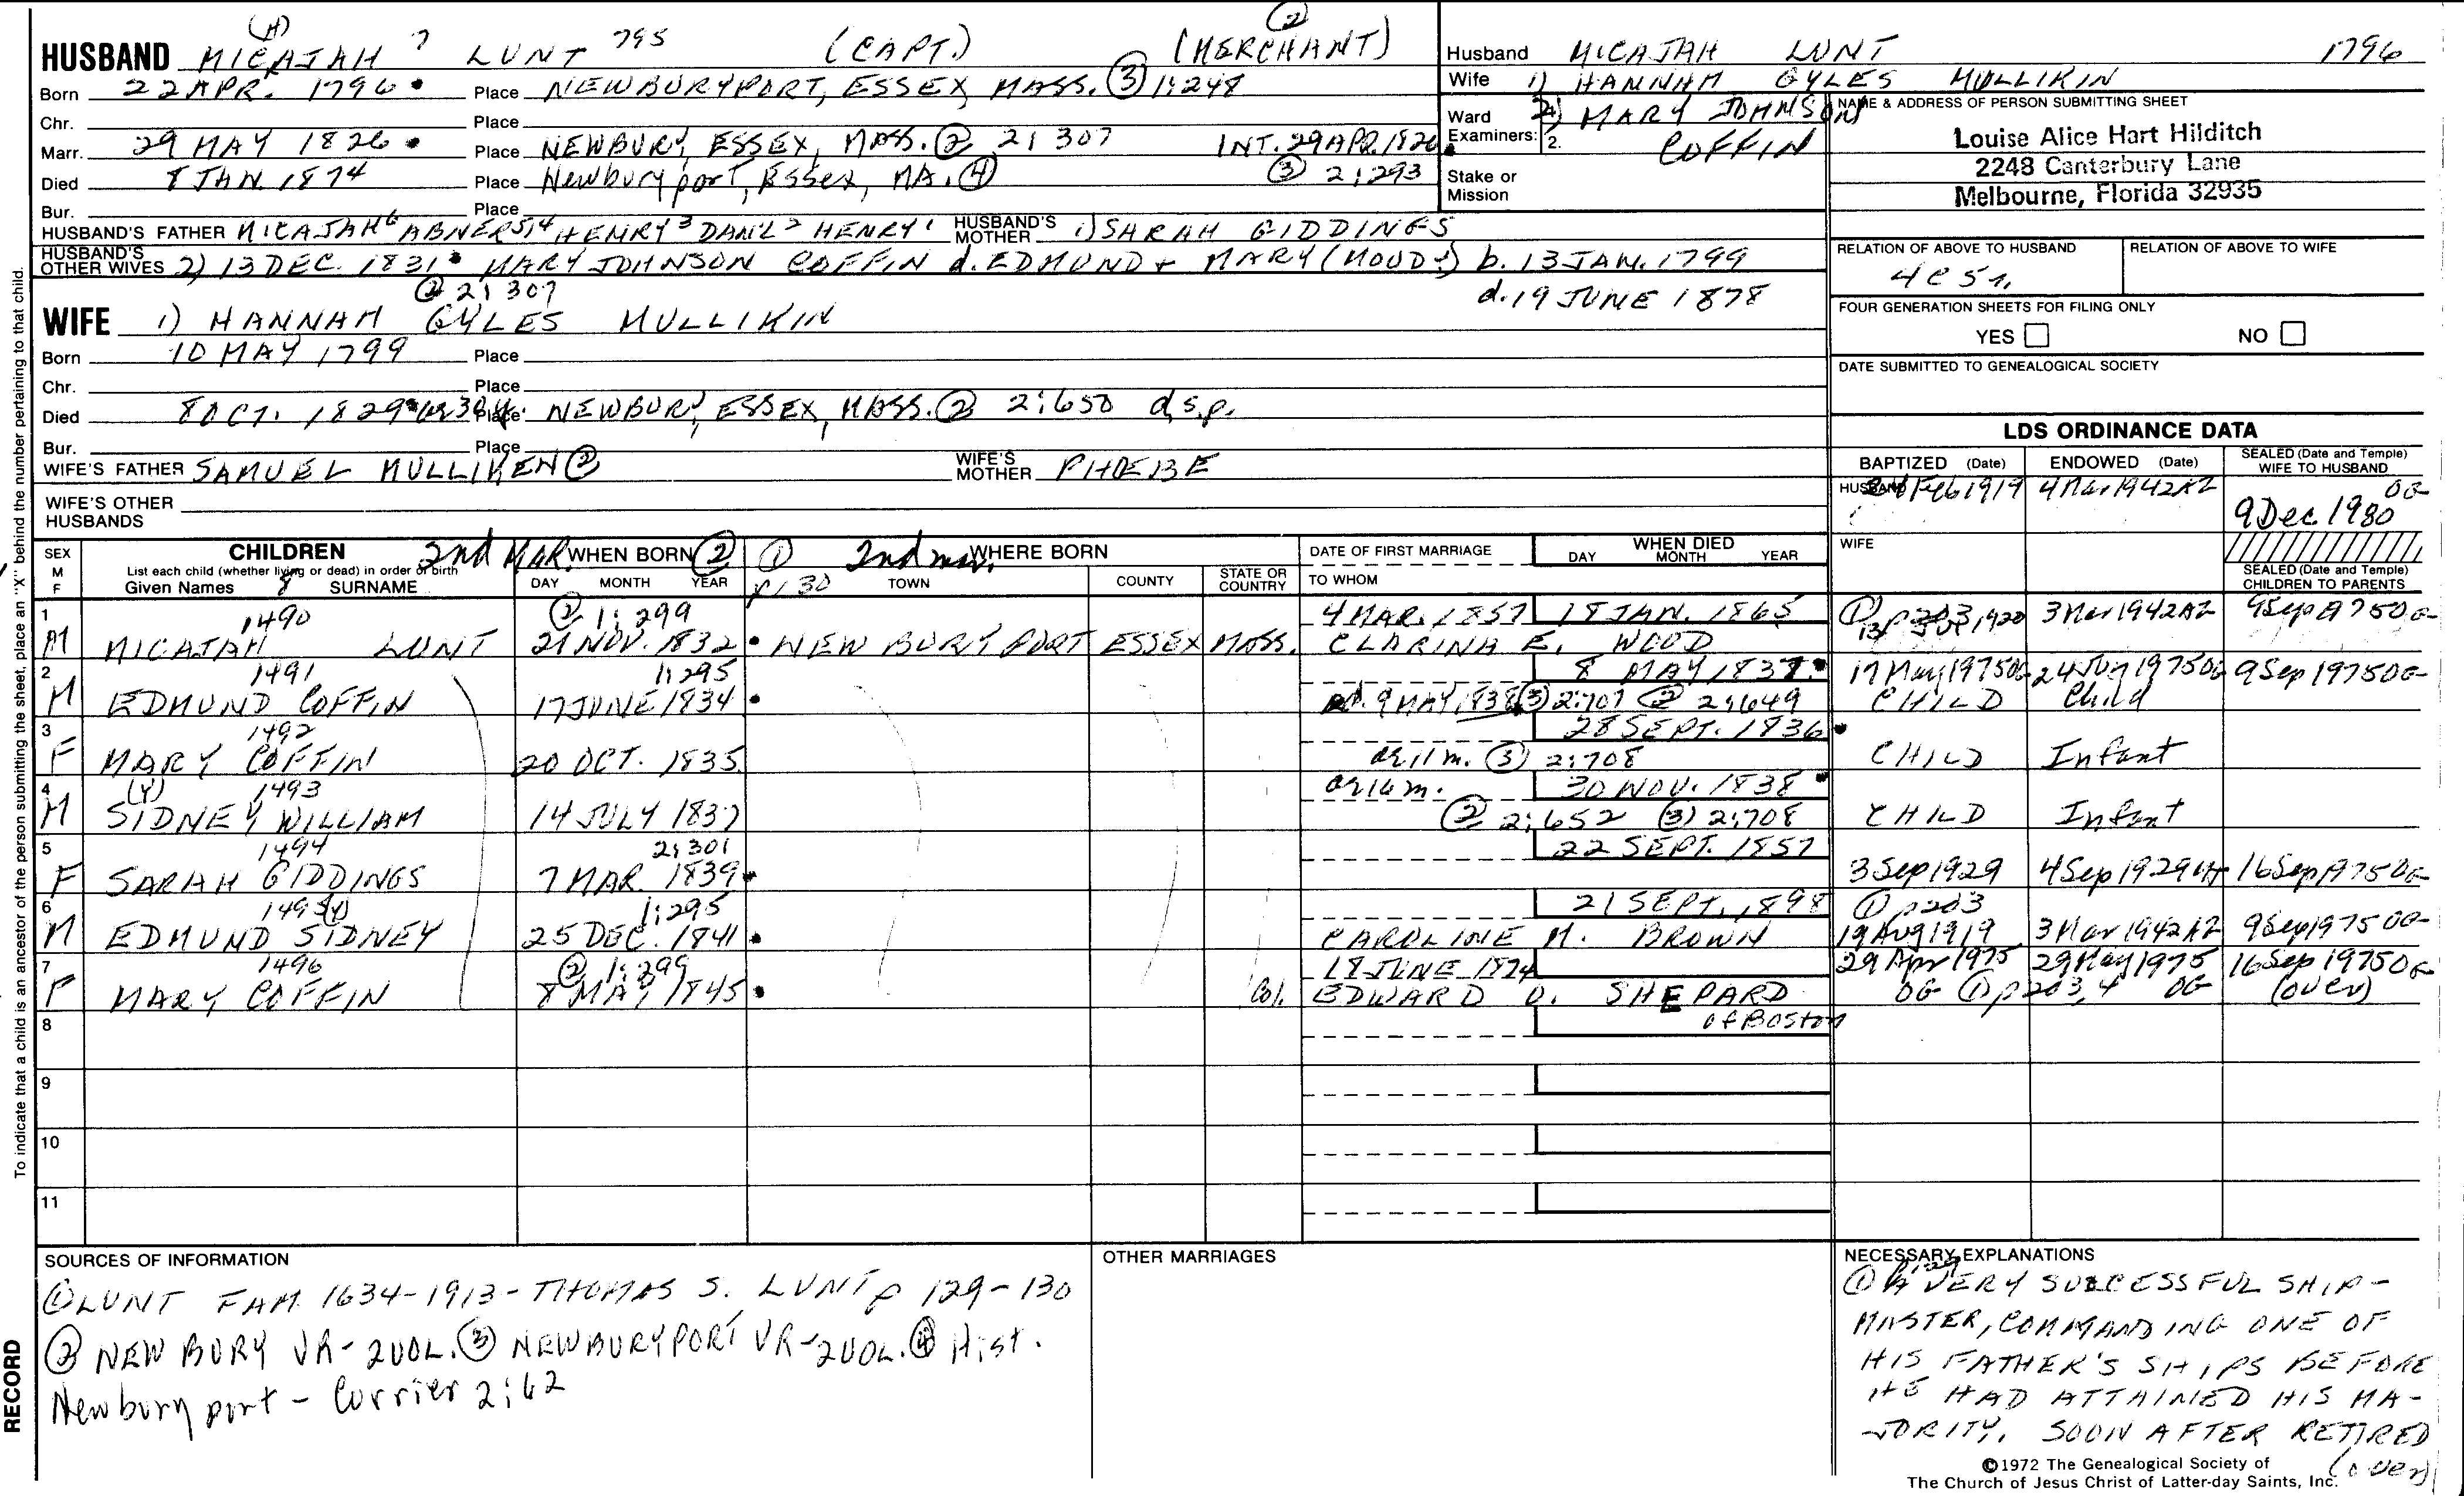 (4) 795 (2)
HUSBAND MICAJAH 7 LUNT (CAPT.) (MERCHANT)
Born 22 APR. 1796 Place NEWBURYPORT, ESSEX, MASS. (3) 1:248
Chr. Place
Marr. 29 MAY 1826 Place NEWBURY, ESSEX, MASS. (2) 2:307 INT. 29 APR. 1826
Died 8 JAN. 1874 Place Newburyport, Essex, MA. (4) (3) 2:293
Bur. Place
HUSBAND'S FATHER MICAJAH6 ABNER5,4 HENRY3 DAN'L2 HENRY1 HUSBAND'S MOTHER 1) SARAH GIDDINGS
HUSBAND'S OTHER WIVES 2) 13 DEC. 1831 MARY JOHNSON COFFIN d. EDMUND + MARY (MOODY) b. 13 JAN. 1799
(2) 2:307 d. 19 JUNE 1878
WIFE 1) HANNAH GYLES MULLIKIN
Born 10 MAY 1799 Place
Chr. Place
Died 8 OCT. 1829 Place NEWBURY, ESSEX, MASS. (2) 2:650 d.s.p.
Bur. Place
WIFE'S FATHER SAMUEL MULLIKEN (2) WIFE'S MOTHER PHOEBE
WIFE'S OTHER HUSBANDS
Husband MICAJAH LUNT 1796
Wife 1) HANNAH GYLES MULLIKIN
Ward 2) MARY JOHNSON
Examiners: 2. COFFIN
Stake or Mission
NAME & ADDRESS OF PERSON SUBMITTING SHEET
Louise Alice Hart Hilditch
2248 Canterbury Lane
Melbourne, Florida 32935
RELATION OF ABOVE TO HUSBAND RELATION OF ABOVE TO WIFE
4c5r.
FOUR GENERATION SHEETS FOR FILING ONLY
YES NO
DATE SUBMITTED TO GENEALOGICAL SOCIETY
LDS ORDINANCE DATA
BAPTIZED (Date) ENDOWED (Date) SEALED (Date and Temple) WIFE TO HUSBAND
HUSBAND Feb 1919 4 Mar 1942 AZ 9 Dec 1980 OG
WIFE
SEALED (Date and Temple) CHILDREN TO PARENTS
SEX M F CHILDREN 2nd MAR. WHEN BORN (2) (1) 2nd mar. WHERE BORN DATE OF FIRST MARRIAGE WHEN DIED DAY MONTH YEAR
List each child (whether living or dead) in order of birth
Given Names SURNAME DAY MONTH YEAR p130 TOWN COUNTY STATE OR COUNTRY TO WHOM
1 1490 (2) 1:299 4 MAR. 1857 18 JAN. 1865 3 Mar 1942 AZ 9 Sep 1975 OG
M MICAJAH LUNT 21 NOV. 1832 NEWBURYPORT ESSEX MASS. CLARINA E. WOOD
2 1491 1:295 8 MAY 1837 17 May 1975 OG 24 Jun 1975 OG 9 Sep 1975 OG
M EDMUND COFFIN 17 JUNE 1834 9 MAY 1838 (3) 2:707 (2) 2:649 CHILD Child
3 1492 28 SEPT. 1836
F MARY COFFIN 20 OCT. 1835 ae 11 m. (3) 2:708 CHILD Infant
4 (Y) 1493 ae 16 m. 30 NOV. 1838
M SIDNEY WILLIAM 14 JULY 1837 (2) 2:652 (3) 2:708 CHILD Infant
5 1494 2:301 22 SEPT. 1857
F SARAH GIDDINGS 7 MAR. 1839 3 Sep 1929 4 Sep 1929 16 Sep 1975 OG
6 1495 (Y) 1:295 21 SEPT. 1898 (1) p203
M EDMUND SIDNEY 25 DEC. 1841 CAROLINE M. BROWN 19 Aug 1919 3 Mar 1942 AZ 9 Sep 1975 OG
7 1496 (2) 1:299 18 JUNE 1874 29 Apr 1975 29 May 1975 16 Sep 1975 OG
F MARY COFFIN 8 MAY 1845 Col. EDWARD O. SHEPARD OG (1) p203,4 OG (over)
8 of Boston
9
10
11
SOURCES OF INFORMATION
(1) LUNT FAM. 1634-1913 - THOMAS S. LUNT p 129-130
(2) NEWBURY VR-2VOL. (3) NEWBURYPORT VR-2VOL. (4) Hist.
Newburyport - Currier 2:62
OTHER MARRIAGES
NECESSARY EXPLANATIONS
p.129
(1) A VERY SUCCESSFUL SHIP-
MASTER, COMMANDING ONE OF
HIS FATHER'S SHIPS BEFORE
HE HAD ATTAINED HIS MA-
JORITY. SOON AFTER RETIRED
(over)
©1972 The Genealogical Society of
The Church of Jesus Christ of Latter-day Saints, Inc.
To indicate that a child is an ancestor of the person submitting the sheet, place an "X" behind the number pertaining to that child.
RECORD